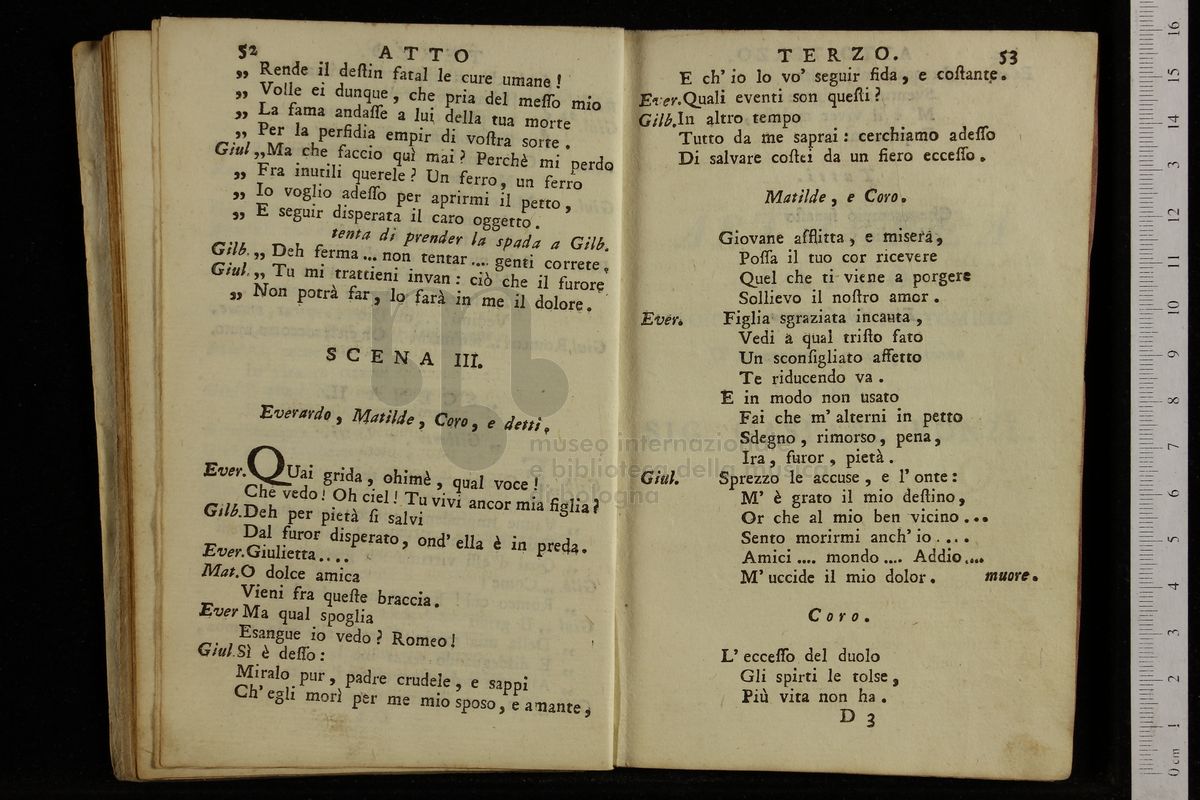 52 ATTO
„ Rende il deſtin fatal le cure umane!
„ Volle ei dunque, che pria del meſſo mio
„ La fama andaſſe a lui della tua morte
„ Per la perfidia empir di voſtra sorte.
Giul „Ma che faccio quì mai? Perchè mi perdo
„ Fra inutili querele? Un ferro, un ferro
„ Io voglio adeſſo per aprirmi il petto,
„ E seguir disperata il caro oggetto.
tenta di prender la spada a Gilb.
Gilb. „ Deh ferma... non tentar.... genti correte,
Giul. „ Tu mi trattieni invan: ciò che il furore
„ Non potrà far, lo farà in me il dolore.
SCENA III.
Everardo, Matilde, Coro, e detti.
Ever. QUai grida, ohimè, qual voce!
Che vedo! Oh ciel! Tu vivi ancor mia figlia?
Gilb. Deh per pietà ſi salvi
Dal furor disperato, ond' ella è in preda.
Ever. Giulietta....
Mat. O dolce amica
Vieni fra queſte braccia.
Ever Ma qual spoglia
Esangue io vedo? Romeo!
Giul. Sì è deſſo:
Miralo pur, padre crudele, e sappi
Ch' egli morì per me mio sposo, e amante,
TERZO. 53
E ch' io lo vo' seguir fida, e coſtante.
Ever. Quali eventi son queſti?
Gilb. In altro tempo
Tutto da me saprai: cerchiamo adeſſo
Di salvare coſtei da un fiero ecceſſo.
Matilde, e Coro.
Giovane afflitta, e misera,
Poſſa il tuo cor ricevere
Quel che ti viene a porgere
Sollievo il noſtro amor.
Ever. Figlia sgraziata incauta,
Vedi a qual triſto fato
Un sconſigliato affetto
Te riducendo va.
E in modo non usato
Fai che m' alterni in petto
Sdegno, rimorso, pena,
Ira, furor, pietà.
Giul. Sprezzo le accuse, e l' onte:
M' è grato il mio deſtino,
Or che al mio ben vicino...
Sento morirmi anch' io....
Amici.... mondo.... Addio....
M' uccide il mio dolor. muore.
Coro.
L' ecceſſo del duolo
Gli spirti le tolse,
Più vita non ha.
D 3
museo internazionale
e biblioteca della musica
di bologna
0 cm 1 2 3 4 5 6 7 8 9 10 11 12 13 14 15 16